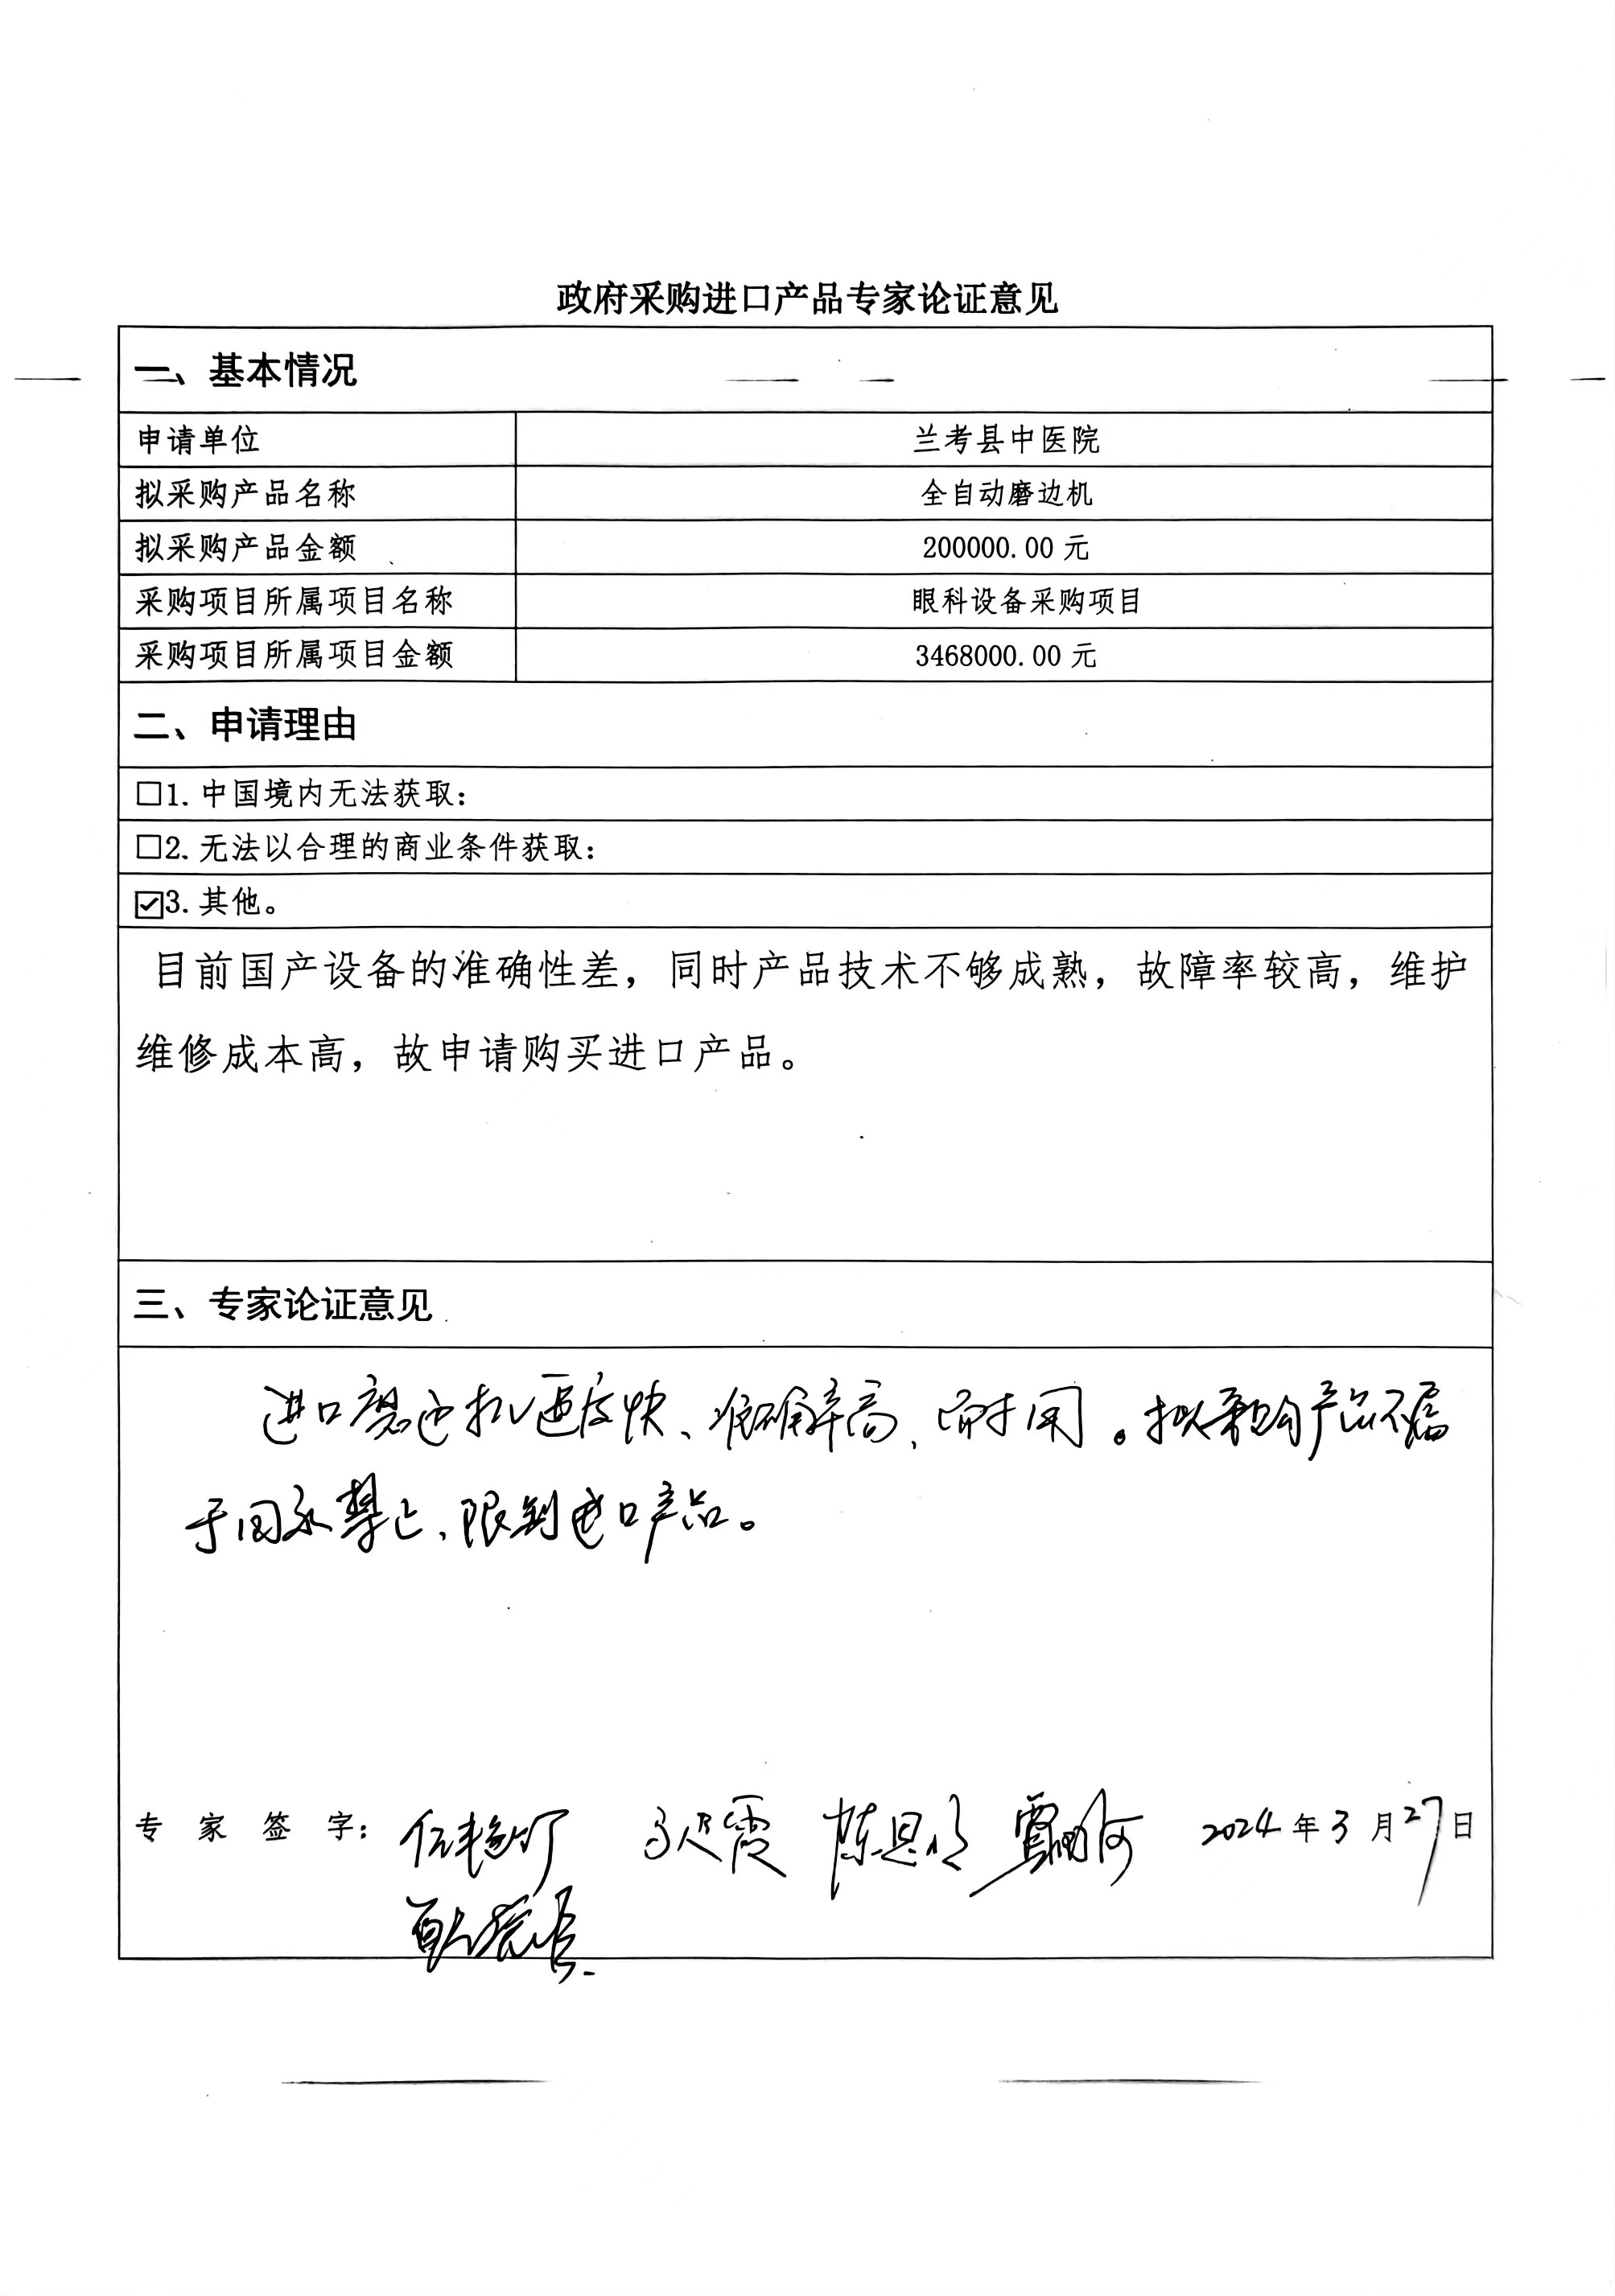 政府采购进口产品专家论证意见
一、基本情况
申请单位 兰考县中医院
拟采购产品名称 全自动磨边机
拟采购产品金额 200000.00 元
采购项目所属项目名称 眼科设备采购项目
采购项目所属项目金额 3468000.00 元
二、申请理由
☐1. 中国境内无法获取：
☐2. 无法以合理的商业条件获取：
☑3. 其他。
目前国产设备的准确性差，同时产品技术不够成熟，故障率较高，维护
维修成本高，故申请购买进口产品。
三、专家论证意见
进口磨边机速度快、准确率高、耐用。拟采购产品不属
于国家禁止、限制进口产品。
专 家 签 字： 2024 年 3 月 27 日